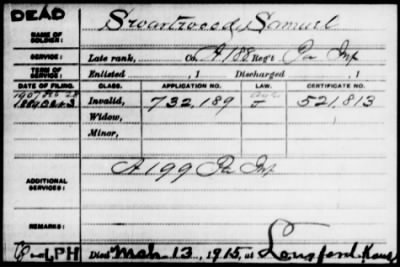 DEAD
NAME OF SOLDIER: Swartwood, Samuel
SERVICE: Late rank, Co. A 188 Reg't Pa Inf
TERM OF SERVICE: Enlisted , 1 Discharged , 1
DATE OF FILING. CLASS. APPLICATION NO. LAW. CERTIFICATE NO.
1907
1889 Oct 3 Invalid, 732,189 521,813
Widow,
Minor,
A 199 Pa Inf
ADDITIONAL SERVICES:
REMARKS:
LPH Died Mch 13, 1915, at Lansford